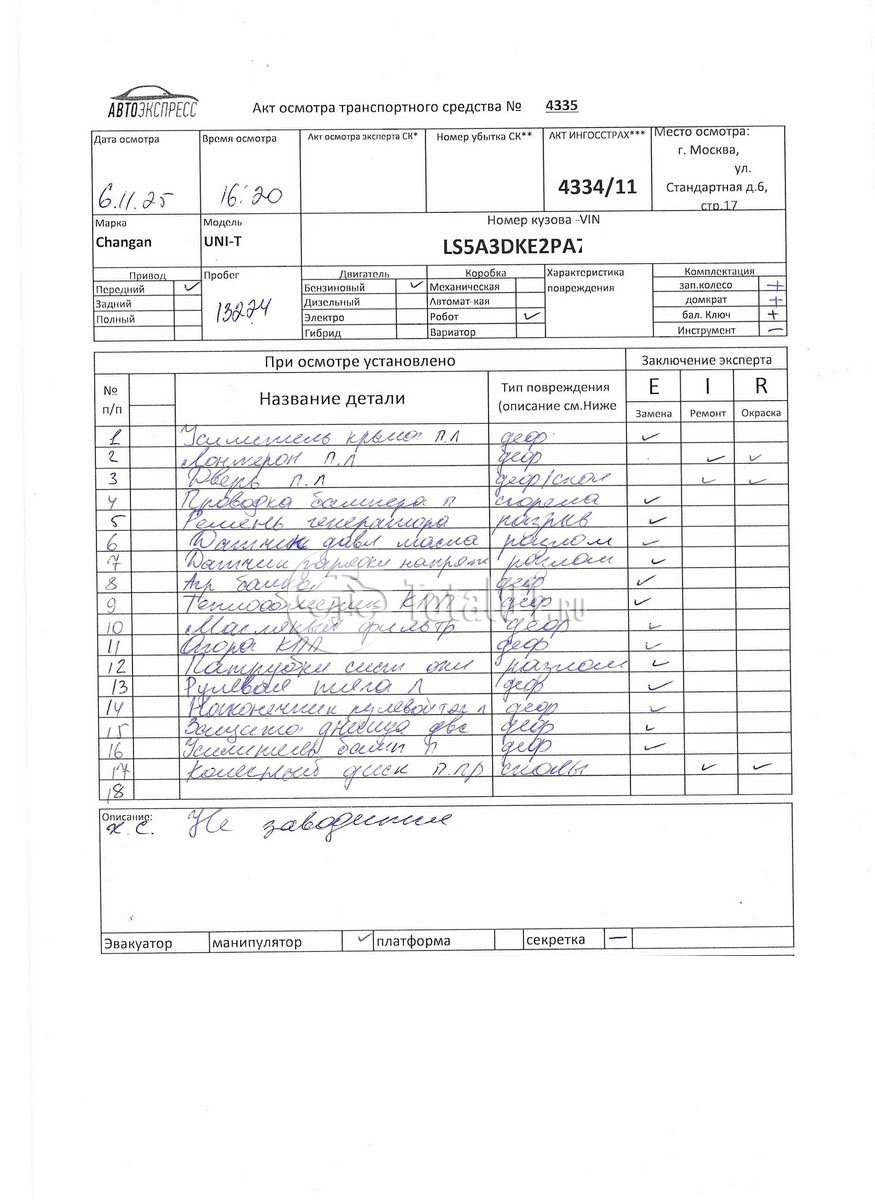 АВТОЭКСПРЕСС
Акт осмотра транспортного средства № 4335
Дата осмотра
6.11.25
Время осмотра
16:20
Акт осмотра эксперта СК*
Номер убытка СК**
АКТ ИНГОССТРАХ***
4334/11
Место осмотра:
г. Москва,
ул.
Стандартная д.6,
стр.17
Марка
Changan
Модель
UNI-T
Номер кузова -VIN
LS5A3DKE2PA7
Привод
Передний ✓
Задний
Полный
Пробег
13224
Двигатель
Бензиновый ✓
Дизельный
Электро
Гибрид
Коробка
Механическая
Автомат-кая
Робот ✓
Вариатор
Характеристика
повреждения
Комплектация
зап.колесо +
домкрат +
бал. Ключ +
Инструмент —
При осмотре установлено
Заключение эксперта
№
п/п
Название детали
Тип повреждения
(описание см.Ниже
E I R
Замена Ремонт Окраска
1 Усилитель крыла п.л деф. ✓
2 Лонжерон п.л деф ✓ ✓
3 Дверь п.л деф/скол ✓ ✓
4 Проводка бампера п сгорела ✓
5 Ремень генератора разрыв ✓
6 Датчик давл масла разлом ✓
7 Датчик зарядки напряж разлом ✓
8 деф ✓
9 Теплообменник КПП деф ✓
10 Масляный фильтр деф ✓
11 Опора КПП деф ✓
12 Патрубки сист охл разлом ✓
13 Рулевая тяга л деф ✓
14 Наконечник рулевой тяг л деф ✓
15 Защита днища двс деф ✓
16 Усилитель бамп п деф ✓
17 Колесный диск п.пр сколы ✓ ✓
18
Описание:
х.с. Не заводится
Эвакуатор манипулятор ✓ платформа секретка —
Total01.RU